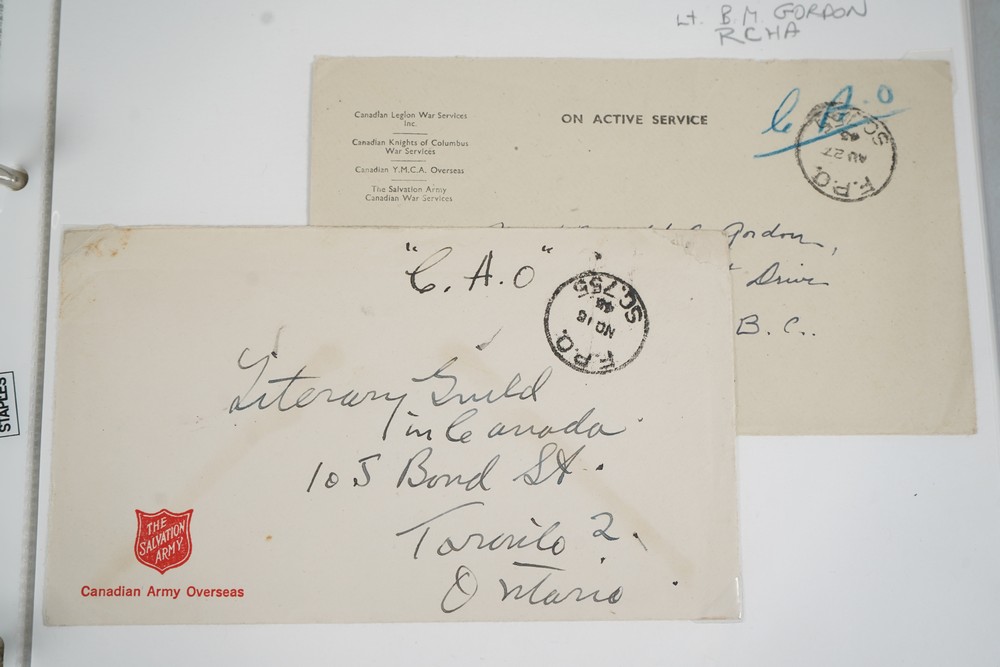 Lt. B. M GORDON
RCHA
Canadian Legion War Services
Inc.
Canadian Knights of Columbus
War Services
Canadian Y.M.C.A. Overseas
The Salvation Army
Canadian War Services
ON ACTIVE SERVICE
C A.O
F.P.O.
AU 27
43
Gordon,
Drive
B.C..
"C.A.O"
F.P.O.
NO 16
SC.755
Literary Guild
in Canada
105 Bond St.
Toronto 2.
Ontario
THE
SALVATION
ARMY
Canadian Army Overseas
STAPLES